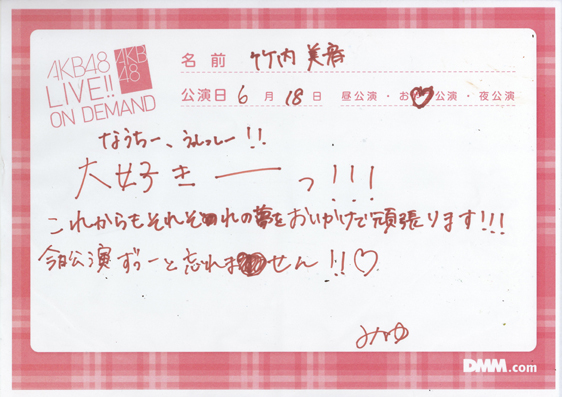 AKB48
LIVE!!
ON DEMAND
AKB
48
名前 竹内美宥
公演日 6月18日 昼公演・お♡公演・夜公演
なうちー、うれしー!!
大好きーっ!!!
これからもそれぞれの夢をおいかけて頑張ります!!!
今日公演ずぅーと忘れません!!♡
みゆ
DMM.com